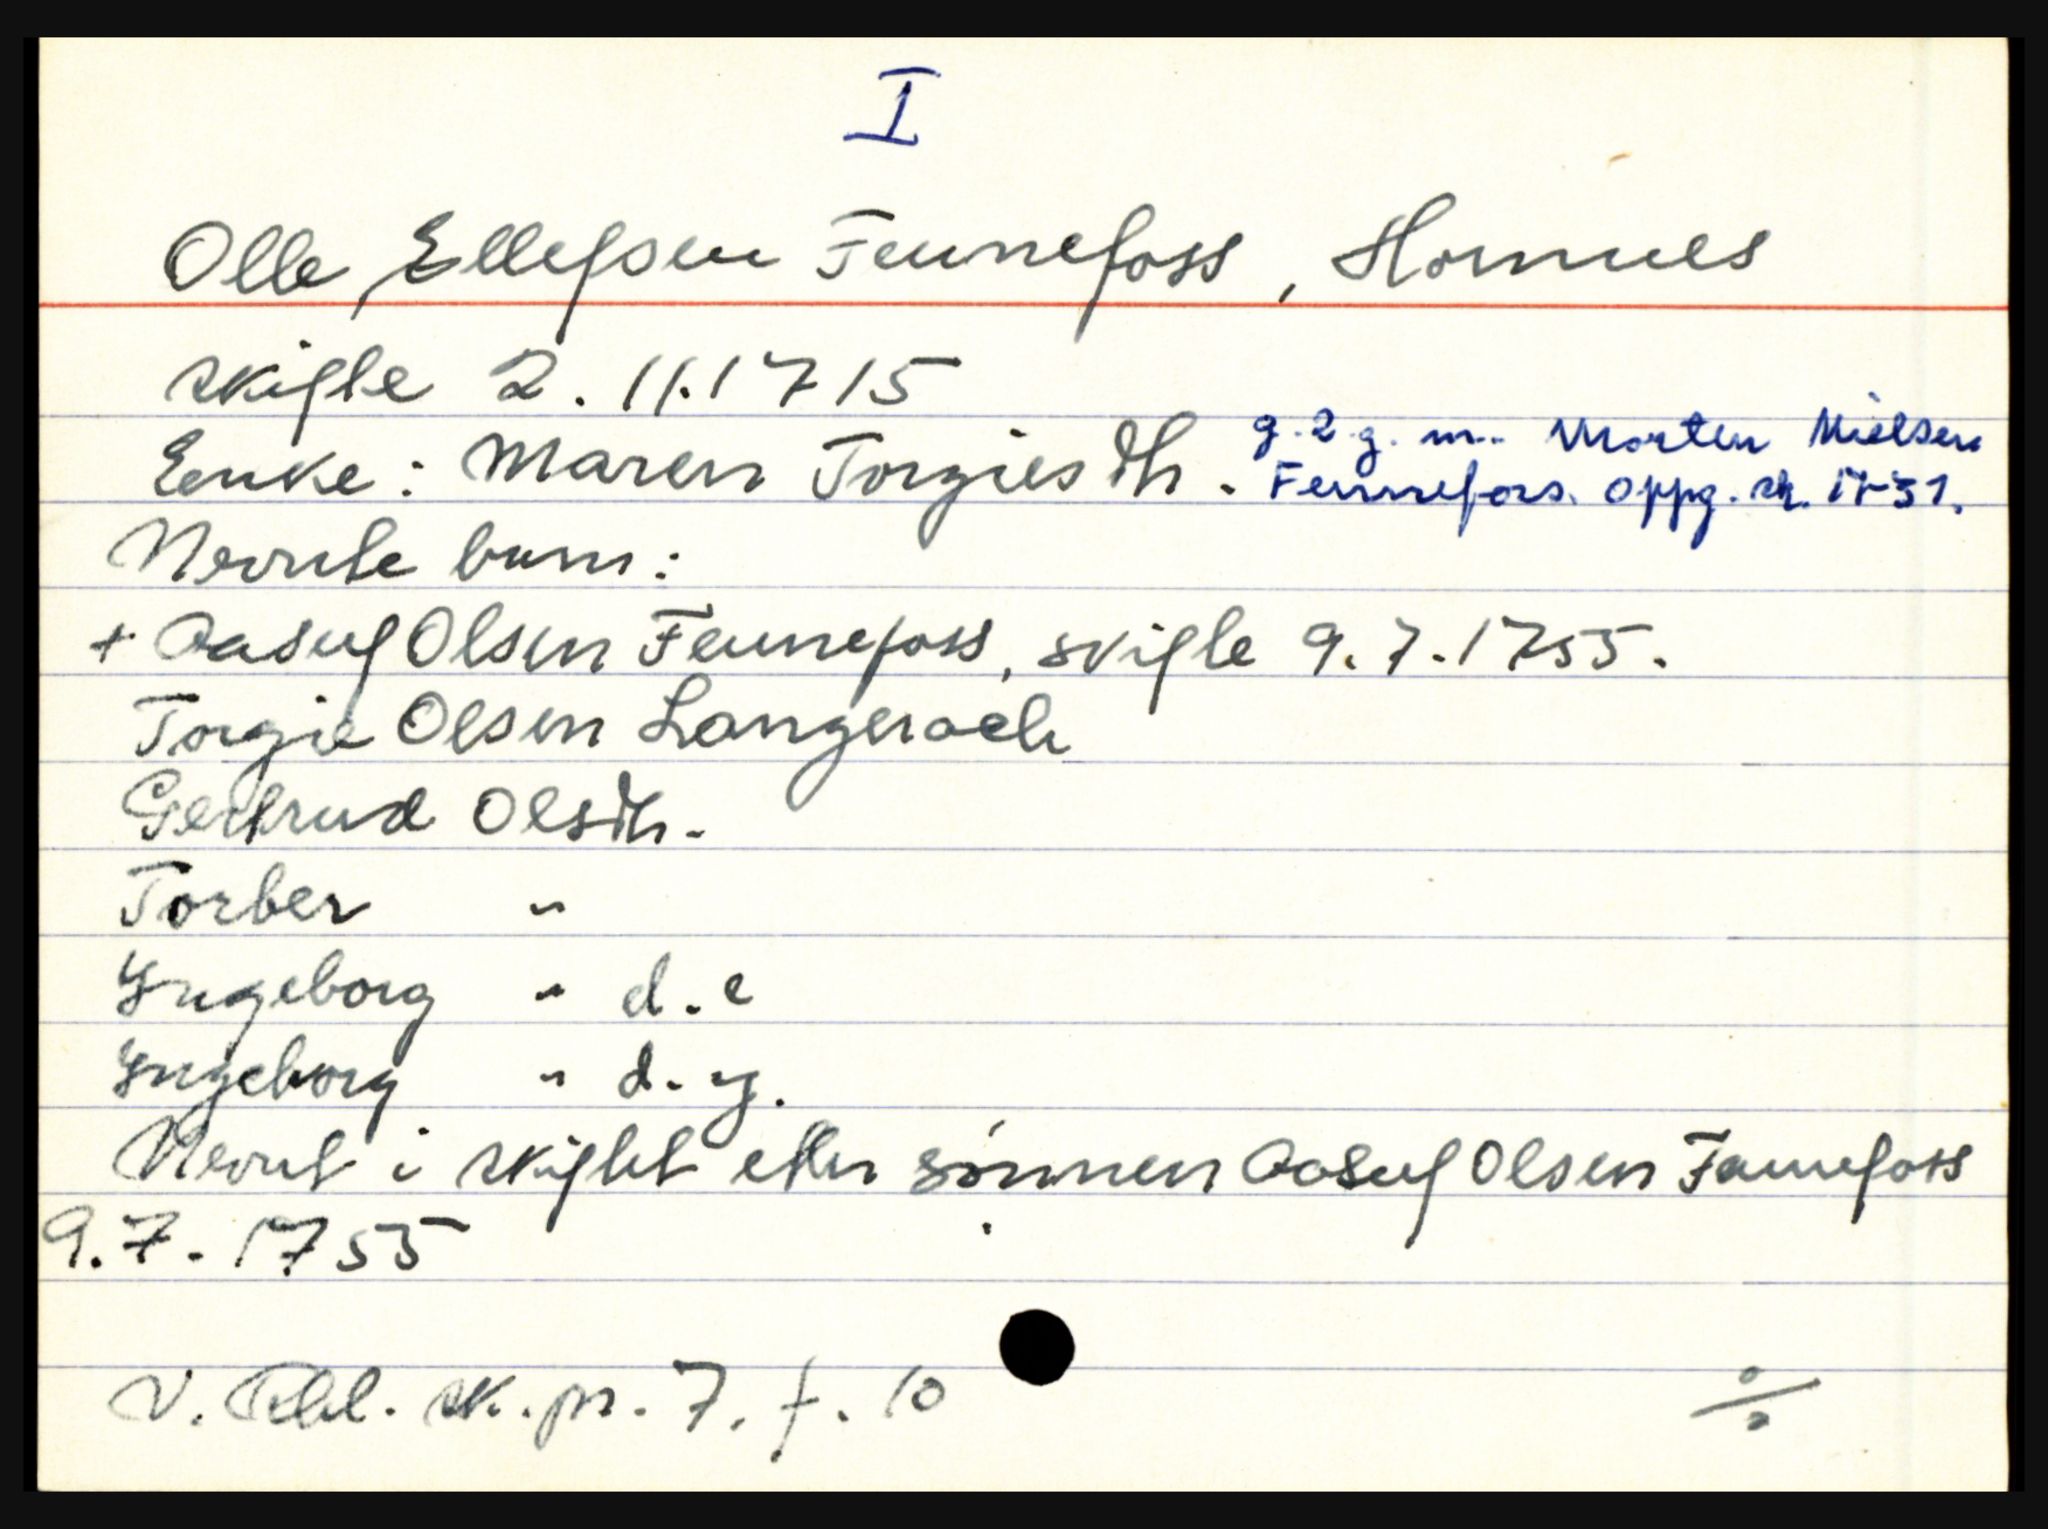 I
Olle Ellefsen Fennefoss, Hornnes
skifte 2.11.1715
Enke: Maren Torgiesdtr. g. 2. g. m. Morten Nielsen
Fennefoss. Oppg. sk. 1731.
Nevnte barn:
+ Aasuf Olsen Fennefoss, skifte 9.7.1755.
Torgie Olsen Langerack
Gertrud Olsdtr.
Torber "
Ingeborg " d.e
Ingeborg " d.y.
Nevnt i skiftet etter sønnen Aasuf Olsen Fennefoss
9.7.1755
V. Rbl. sk. pr. 7. f. 10